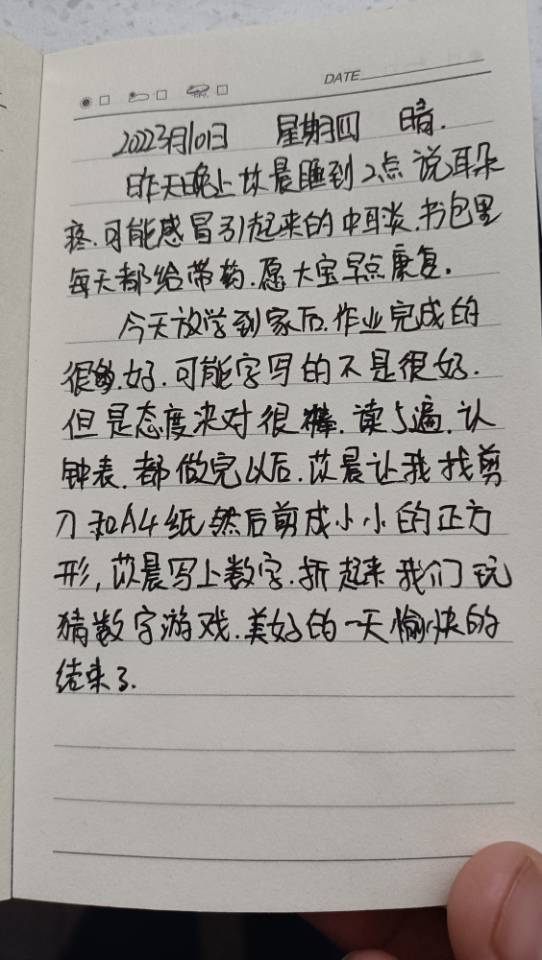 DATE
2022 3月10日 星期四 晴.
昨天晚上苡晨睡到2点说耳朵
疼.可能感冒引起来的中耳炎.书包里
每天都给带药.愿大宝早点康复.
今天放学到家后.作业完成的
很好.可能字写的不是很好.
但是态度决对很棒.读5遍.认
钟表.都做完以后.苡晨让我找剪
刀和A4纸然后剪成小小的正方
形,苡晨写上数字.折起来我们玩
猜数字游戏.美好的一天愉快的
结束了.